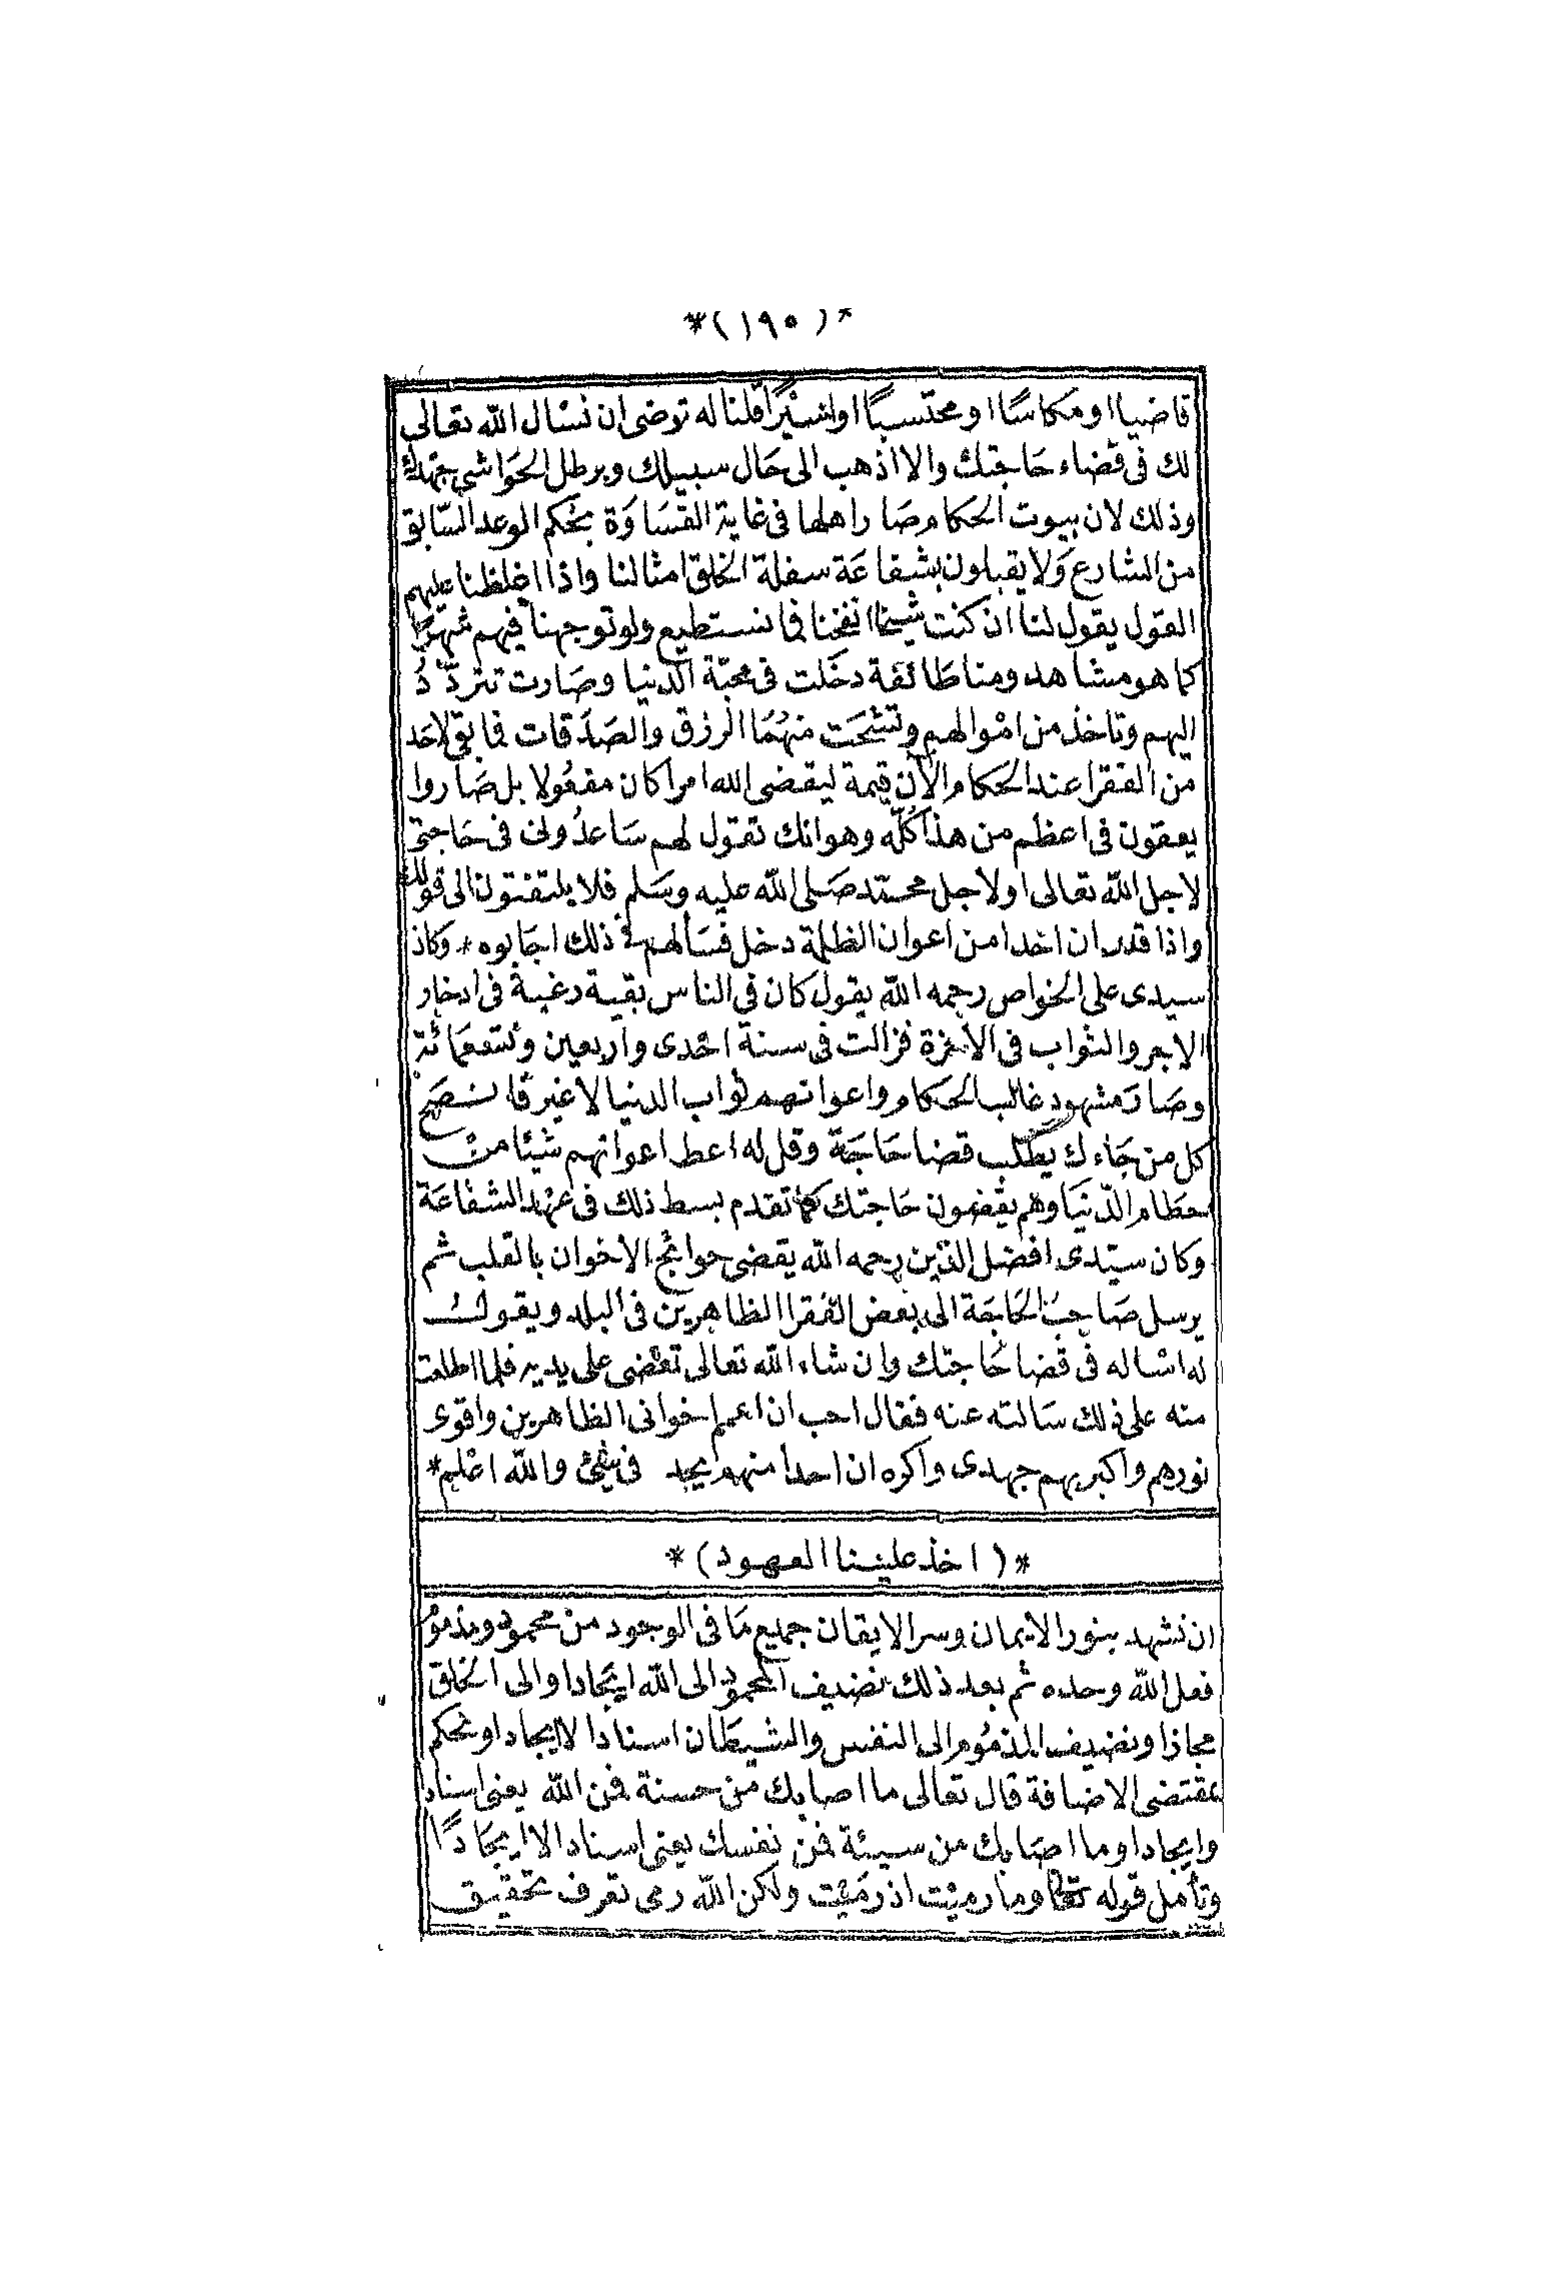 *(١٩٥)*
قاضيا او مكاسًا او محتسبًا او اميرًا قلنا له ترضى ان نسْال الله تعالى
لك فى قضاء حَاجتك والا اذهب الى حَال سبيلك وبرطل الحَواشى جهدك
وذلك لان بيوت الحكام صَار اهلها فى غاية القسَاوَة بحُكم الوعد السَّابق
من الشارع وَلا يقبلون بشفاعَة سفلة الخلق امثالنا واذا اغلظنا عليهم
القول يقول لنا ان كنت شيخا انفخنا فما نستطيع ولو توجهنا فيهم شهرًا
كما هو مشاهد ومنا طَائفة دخَلت فى محبّة الدنيا وصَارت تتردّدُ
اليهم وتاخذ من امْوالهم وتشحَت منهُمُ الرزق والصَدَقات فما بقى لاحَد
من الفقرا عند الحَكام الآن قيمة ليقضى الله امرا كان مفعُولا بل صَاروا
يعقون فى اعظم من هذا كُلّه وهو انك تقول لهم سَاعدُونى فى حَاجتى
لاجل الله تعالى او لاجل محمّد صَلى الله عليه وسَلم فلا يلتفتون الى قولك
واذا قدر ان احدا من اعوان الظلمة دخل فسَألهم فى ذلك اجَابوه * وَكان
سيدى على الخواص رحمه الله يقول كان فى الناس بقية رغبة فى ادخار
الاجر والثواب فى الآخرة فزالت فى سنة احْدى واربعين وتسعمَائة
وصَارَ مشهود غالب الحكام واعوانهم ثواب الدنيا لا غير فانصَح
كل من جَاءك يطلب قضا حَاجَة وقل له اعط اعوانهم شيئا منْ
حطَام الدّنيَا وهم يقضون حَاجتك كما تقدم بسط ذلك فى عهْد الشفاعَة
وكان سيّدى افضل الدّين رحمه الله يقضى حوائج الاخوان بالقلب ثم
يرسل صَاحبُ الحَاجَة الى بعض الفقرا الظاهرين فى البلد ويقولُ
له اساله فى قضا حَاجتك وان شاء الله تعالى تقضى على يديه فلما اطلعت
منه على ذلك سَالته عنه فقال احب ان اعمم اخوانى الظاهرين واقوى
نورهم واكبر بهم جهدى واكره ان احدا منهم يجد فى شئ والله اعْلم*
*(اخذ علينا العهود)*
ان نشهد بنور الايمان وسر الايقان جميع مَا فى الوجود من محمود ومذموُ
فعل الله وحده ثم بعد ذلك نضيف المحمود الى الله ايجَادا والى الخلق
مجازا ونضيف المذمُوم الى النفس والشيطَان اسنادا لا ايجادا ونحكم
بمقتضى الاضافة قال تعالى ما اصابك من حسنة فمن الله يعنى اسناد
وايجادا وما اصَابك من سيئة فمن نفسك يعنى اسنادا لا ايجَادًا
وتأمل قوله تعالى وما رميْت اذ رمَيْت ولكن الله رمى تعرف تحقيق